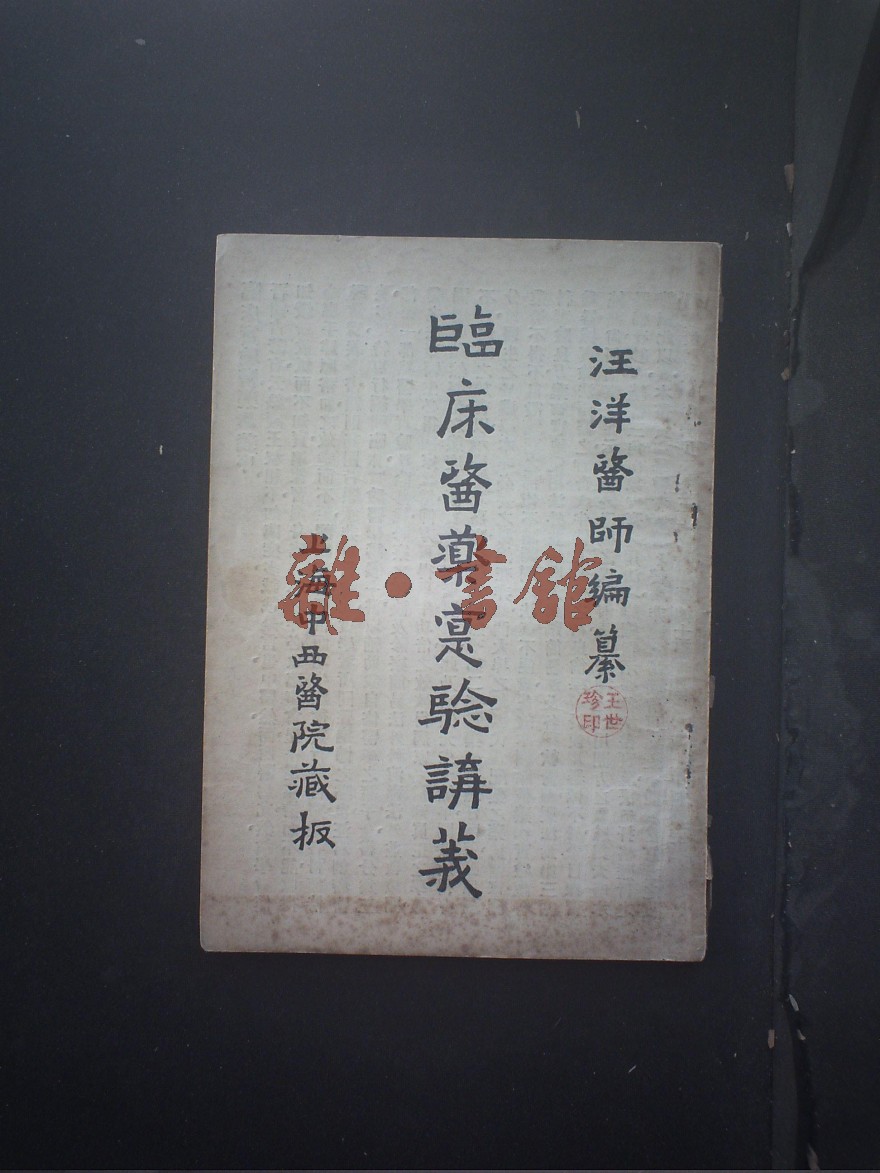 汪洋醫師編纂
王世珍印
臨床醫藥實驗講義
上海中西醫院藏板
雜·書舘